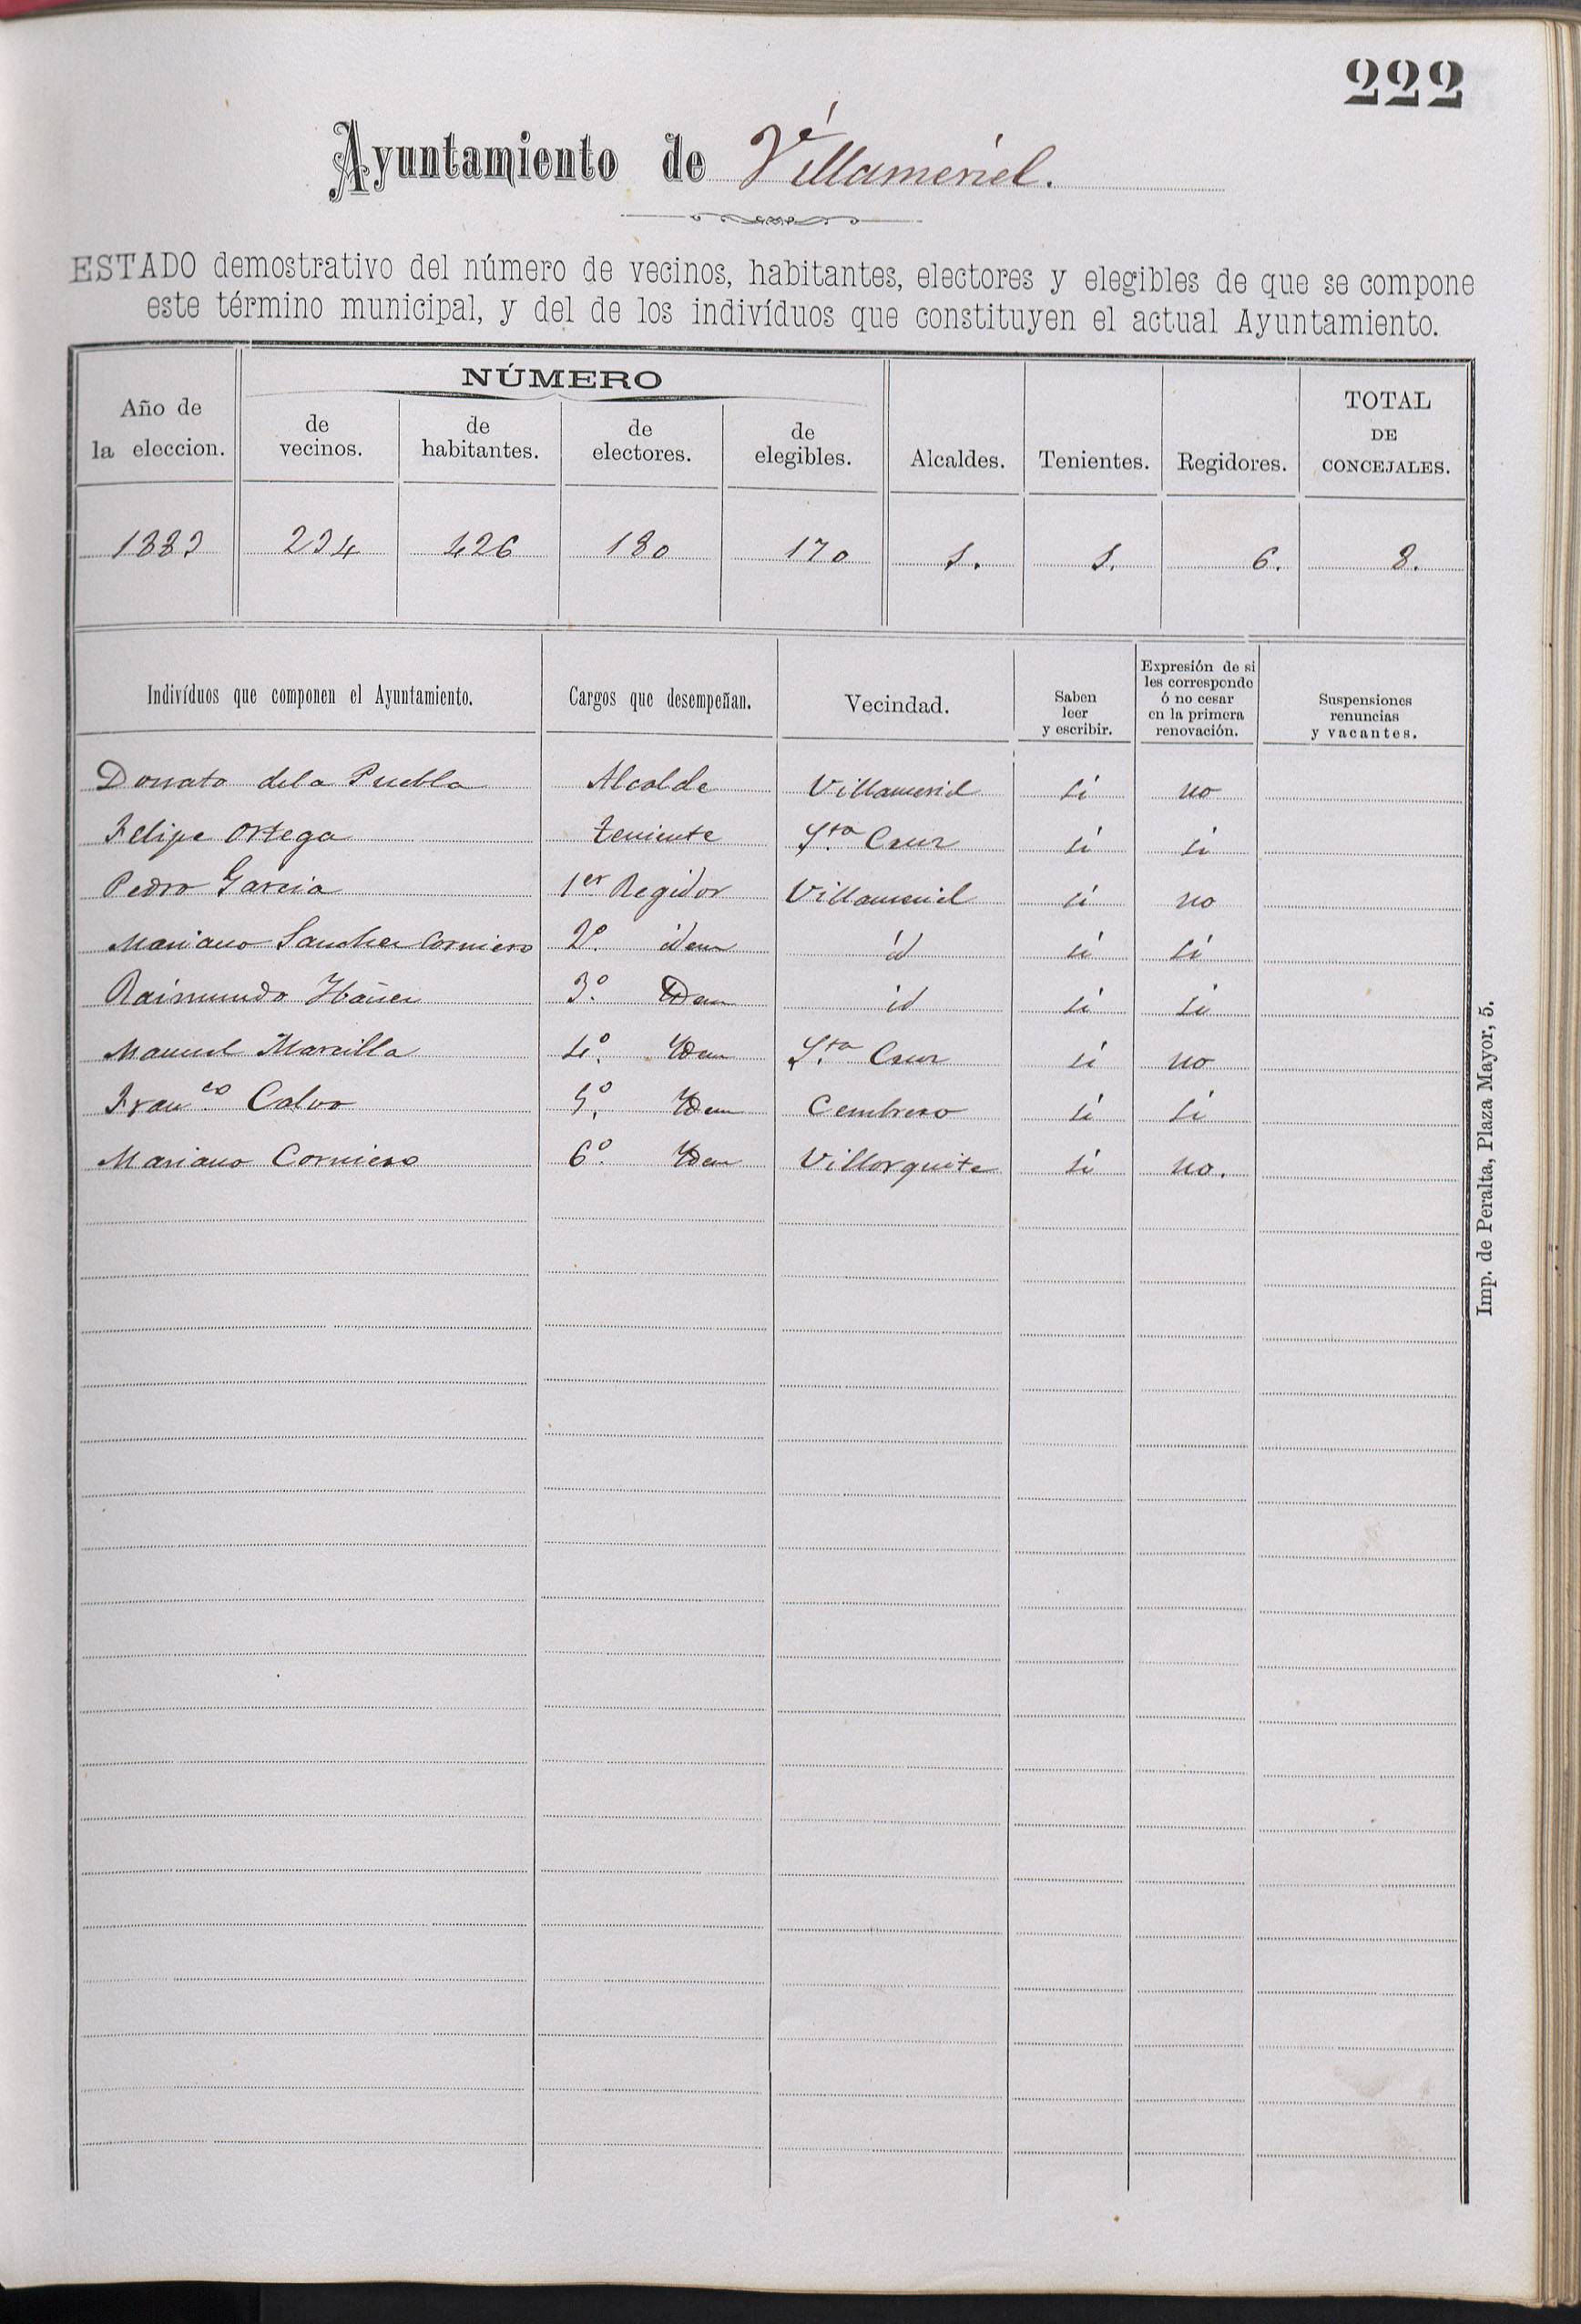 222
Ayuntamiento de Villameriel.
ESTADO demostrativo del número de vecinos, habitantes, electores y elegibles de que se compone
este término municipal, y del de los indivíduos que constituyen el actual Ayuntamiento.
Año de la eleccion. NÚMERO de vecinos. de habitantes. de electores. de elegibles. Alcaldes. Tenientes. Regidores. TOTAL DE CONCEJALES.
1883 234 426 180 170 1. 1. 6. 8.
Indivíduos que componen el Ayuntamiento. Cargos que desempeñan. Vecindad. Saben leer y escribir. Expresión de si les corresponde ó no cesar en la primera renovación. Suspensiones renuncias y vacantes.
Donato dela Puebla Alcalde Villameriel si no
Felipe Ortega teniente Sta. Cruz si si
Pedro Garcia 1er Regidor Villameriel si no
Mariano Sanchez Corniero 2º. idem id si si
Raimundo Ibañez 3º. Idem id si si
Manuel Marcilla 4º. Idem Sta. Cruz si no
Franco. Calvo 5º. Idem Cembrero si si
Mariano Corniero 6º. Idem Villorquite si no.
Imp. de Peralta, Plaza Mayor, 5.